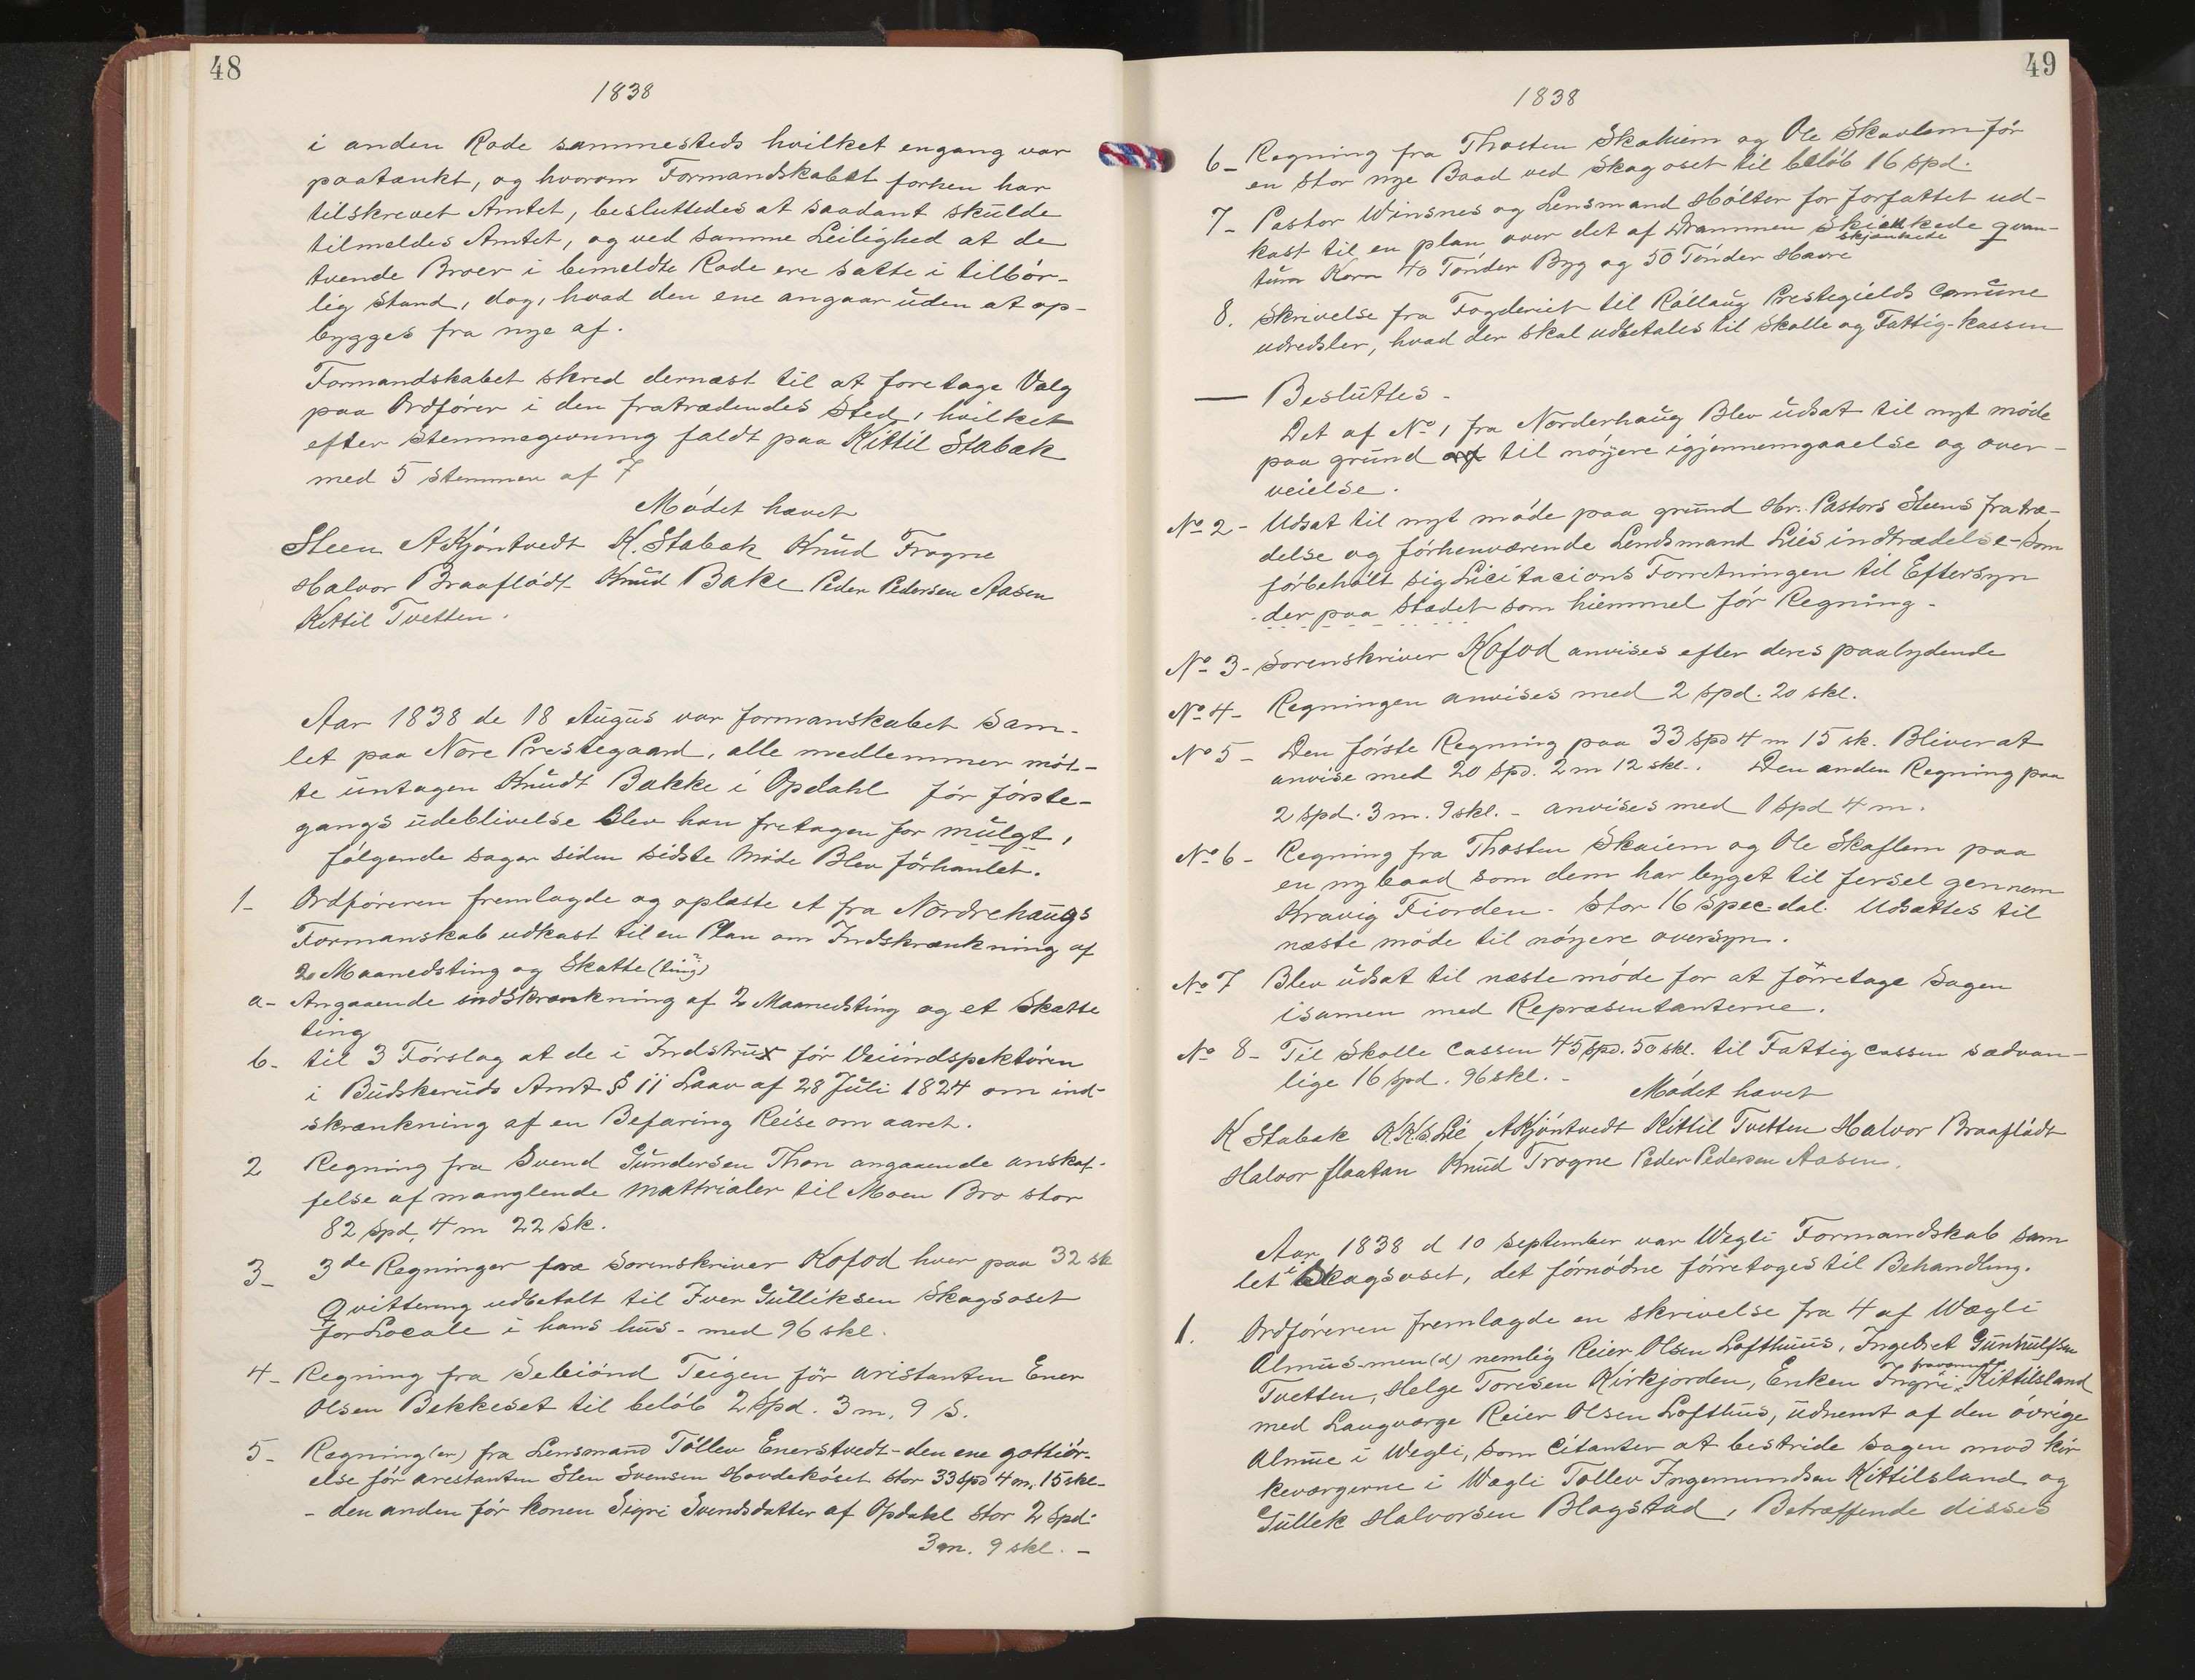 48
1838
i anden Rode sammesteds hvilket engang var
paatænkt, og hvorom Formandskabet forhen har
tilskrevet Amtet, besluttedes at saadant skulde
tilmeldes Amtet, og ved samme Leilighed at de
tvende Broer i bemeldte Rode ere satte i tilbør-
lig Stand, dog, hvad den ene angaar uden at op-
bygges fra nye af.
Formandskabet skred dernæst til at foretage Valg
paa Ordfører i den fratrædendes Sted, hvilket
efter Stemmegivning faldt paa Kittil Stabæk
med 5 stemmer af 7
Mødet hævet
Steen A Kjøntvedt K. Stabæk Knud Frogne
Halvor Braaflådt Knud Bake Peder Pedersen Aasen
Kittil Tvetten.
Aar 1838 de 18 Augus var formanskabet Sam-
let paa Nore Prestegaard, alle medlemmer møt-
te untagen Knudt Bakke i Opdahl før første-
gangs udeblivelse Blev han fretagen for mulgt,
følgende sager siden sidste Møde Blev førhanlet.
1- Ordføreren fremlagde og oplæste et fra Nordrehaugs
Formanskab udkast til en Plan om Indskrænkning af
2 Maanedsting og Skatte (ting?)
a- Angaaende indskrænkning af 2 Maanedsting og et Skatte
ting
b- til 3 Førslag at de i Indstrux før Veiindspektøren
i Budskeruds Amt § 11 Laav af 28 Juli 1824 om ind-
skrænkning af en Befaring Reise om aaret.
2 Regning fra Svend Gundersen Thon angaaende anskaf-
felse af manglende Mattrialer til Moen Bro stor
82 spd, 4 m 22 sk.
3- 3de Regninger fra Sorenskriver Kofod hver paa 32 sk
Qvittering udbetalt til Iver Gulliksen Skagsoset
for Locale i hans hus - med 96 skl.
4- Regning fra Sebiønd Teigen før aristanten Ener
Olsen Bekkeset til beløb 2 Spd. 3 m. 9 s.
5- Regning(er) fra Lensmand Tøllev Enerstvedt - den ene gottiør-
else før arestanten Sten Svensen Hovdekøset stor 33 Spd 4 m. 15 skl-
- den anden før konen Sigri Svendsdatter af Opdahl Stor 2 Spd.
3 m. 9 skl. -
49
1838
6- Regning fra Thosten Skahiem og Ole Skavlem før
en stor nye Baad ved Skagoset til beløb 16 spd.
7- Pastor Winsnes og Lensmand Hølter for forfattet ud-
kast til en plan over det af Drammen Skienkede qvan-
skjænkede
tum Korn 40 Tønder Byg og 50 Tønder Havre
8. Skrivelse fra Fogderiet til Rollaug Prestegields Comune
udredsler, hvad der skal udbetales til Skolle og Fattig-kassen
— Besluttes -
Det af No 1 fra Norderhaug Blev udsat til nyt møde
paa grund af til nøyere igjennemgaaelse og over-
veielse.
No 2- Udsat til nyt møde paa grund Hr. Pastors Steens fratræ-
delse og førhenværende Lendsmand Liis indtrædelse - Som
førbehølt sig Licitacions Forretningen til Eftersyn
der paa Stædet som hiemmel før Regning -
No 3- Sorenskriver Kofod anvises efter deres paalydende
No 4- Regningen anvises med 2 spd. 20 skl.
No 5- Den første Regning paa 33 spd 4 m 15 sk. Bliver at
anvise med 20 Spd. 2 m 12 skl.. Den anden Regning paa
2 spd. 3 m. 9 skl. - anvises med 1 Spd 4 m.
No 6- Regning fra Thosten Skaiem og Ole Skaflem paa
en ny baad som dem har byget til fersel gennem
Kravig Fiorden - Stor 16 Spec. dal. Udsættes til
næste møde til nøyere oversyn.
No 7 Blev udsat til næste møde for at førretage Sagen
isamen med Repræsentanterne.
No 8- Til Skolle Cassen 45 spd. 50 skl. til Fattig cassen sædvan-
lige 16 Spd. 96 skl. -
Mødet hævet
K Stabæk K.K.S. Lie A Kjøntvedt Kittil Tvetten Halvor Braaflådt
Halvor flaatan Knud Trogne Peder Pedersen Aasen.
Aar 1838 d 10 september var Wegli Formandskab sam
let i Skagsoset, det førnødne førretoges til Behandling.
1. Ordføreren fremlagde en skrivelse fra 4 af Wægli
Almus-men(d) nemlig Reier Olsen Lofthuus, Ingebret Gunhulfsen
Tvetten, Helge Toresen Kirkjorden, Enken Ingri Kittilsland
med Laugværge Reier Olsen Lofthus, udnemt af den øvrige
Almue i Wegli, som Citanter at bestride Sagen mod kir
keværgerne i Wægli Tollev Ingemundsen Kittilsland og
Gullek Halvorsen Blagstad, Betræffende disses